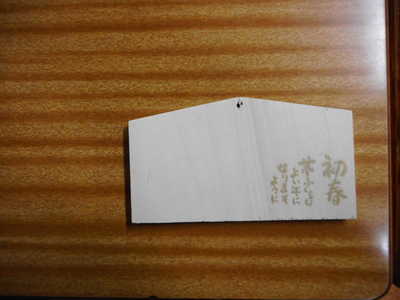 初春
よい年に
なります
ように